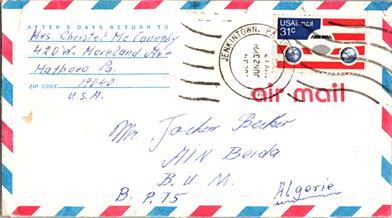 AFTER 5 DAYS RETURN TO
Mrs Christel Mc Coneghy
420 W. Moreland Ave
Hatboro Pa.
ZIP CODE 19040
U.S.A.
JENKINTOWN, PA
JUN 23 PM
USAirmail
31c
air mail
Mr. Jacker Becker
AIN Beida
B. U. M.
B. P. 75 Algerie